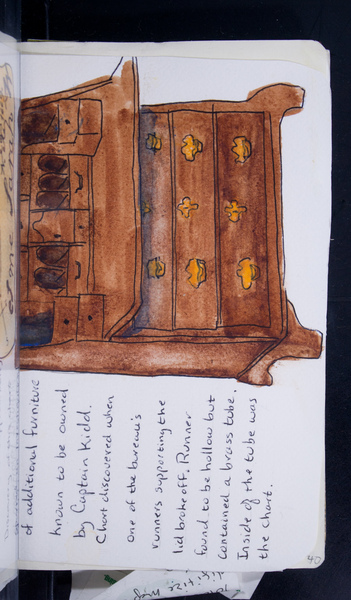 of additional furniture
known to be owned
by Captain Kidd.
Chart discovered when
one of the bureau's
runners supporting the
lid broke off. Runner
found to be hollow but
contained a brass tube.
Inside of the tube was
the chart.
40